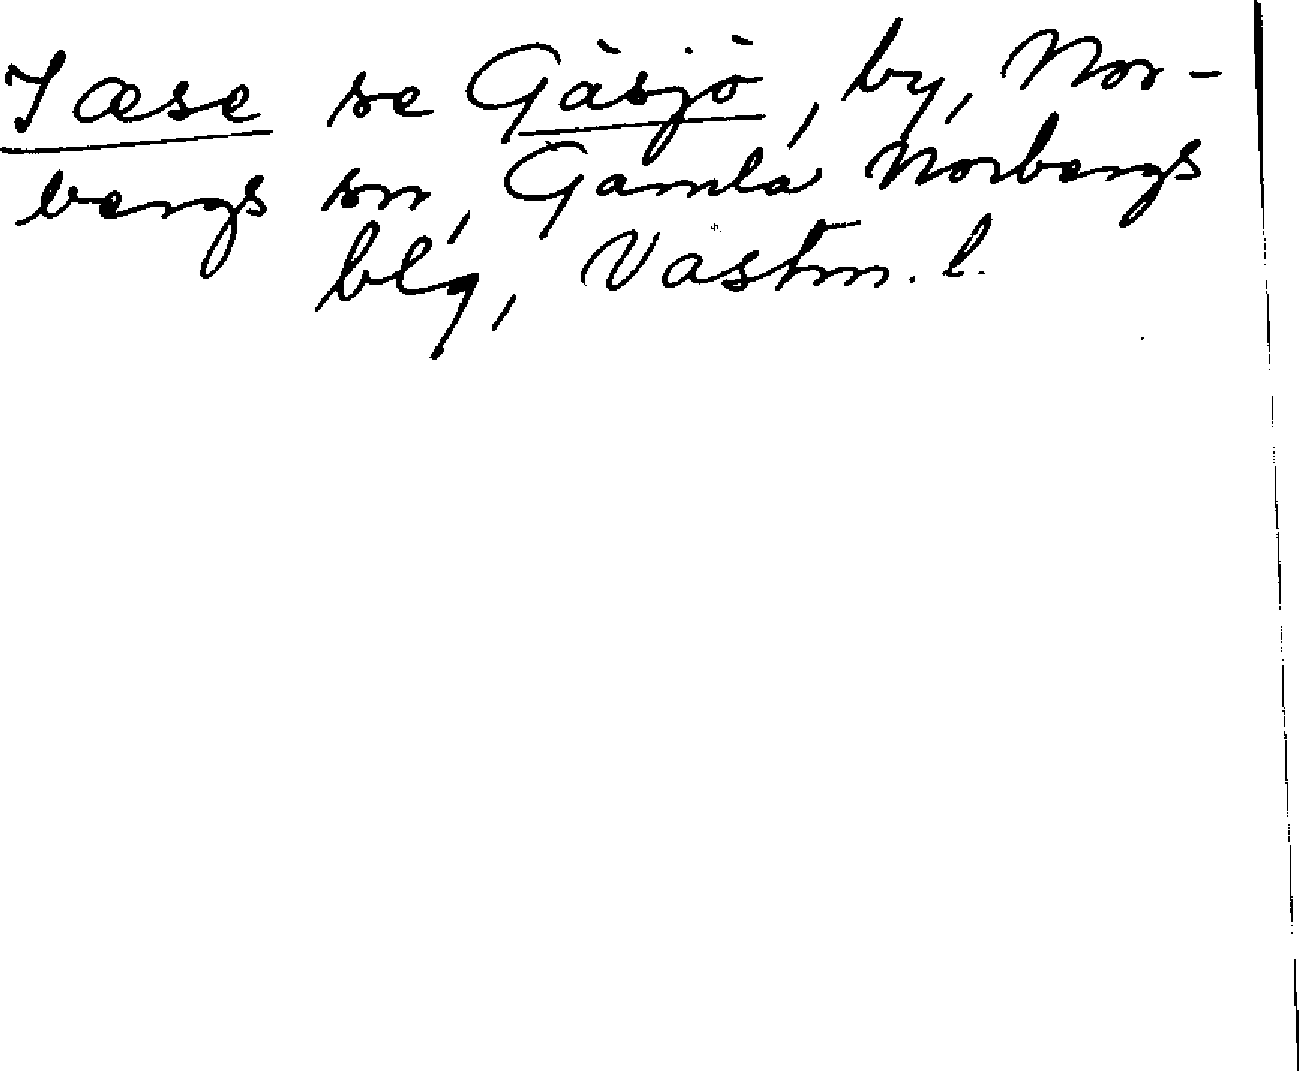 Iæse se Gåsjö, by, Nor-
bergs sn, Gamla Norbergs
blg, Västm. l.